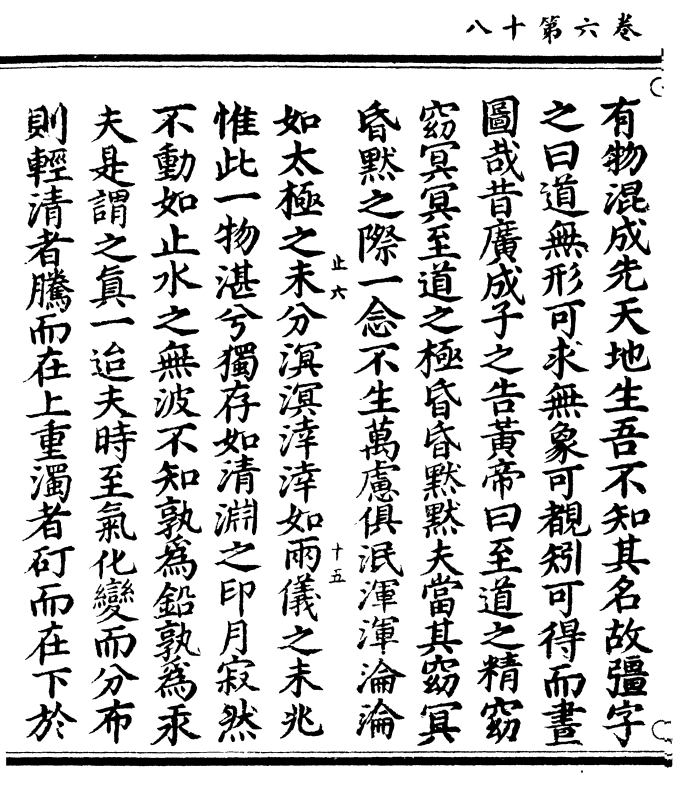 卷六第十八
有物混成先天地生吾不知其名故彊字
之曰道無形可求無象可覩矧可得而畫
圖哉昔廣成子之告黃帝曰至道之精窈
窈冥冥至道之極昏昏默默夫當其窈冥
昏默之際一念不生萬慮俱泯渾渾淪淪
如太極之未分溟溟涬涬如兩儀之未兆
止六
十五
惟此一物湛兮獨存如清淵之印月寂然
不動如止水之無波不知孰為鉛孰為汞
夫是謂之眞一迨夫時至氣化變而分布
則輕清者騰而在上重濁者矴而在下於